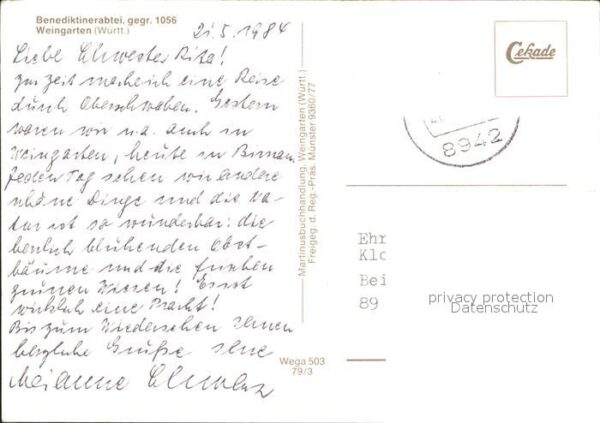 Benediktinerabtei, gegr. 1056
Weingarten (Württ.)
21.5.1984
Liebe Schwester Rita!
Zur Zeit mache ich eine Reise
durch Oberschwaben. Gestern
waren wir u.a. auch in
Weingarten, heute in
Jeden Tag sehen wir andere
schöne Dinge und die Na-
tur ist so wunderbar: die
herrlich blühenden Obst-
bäume und die frischen
grünen Wiesen! Es ist
wirklich eine Pracht!
Bis zum Wiedersehen Ihnen
herzliche Grüße Ihre
Marianne
Martinusbuchhandlung, Weingarten (Württ.)
Freigeg. d. Reg.-Präs. Münster 9360/77
Wega 503
79/3
Cekade
8942
Ehr
Klo
Bei
89
privacy protection
Datenschutz